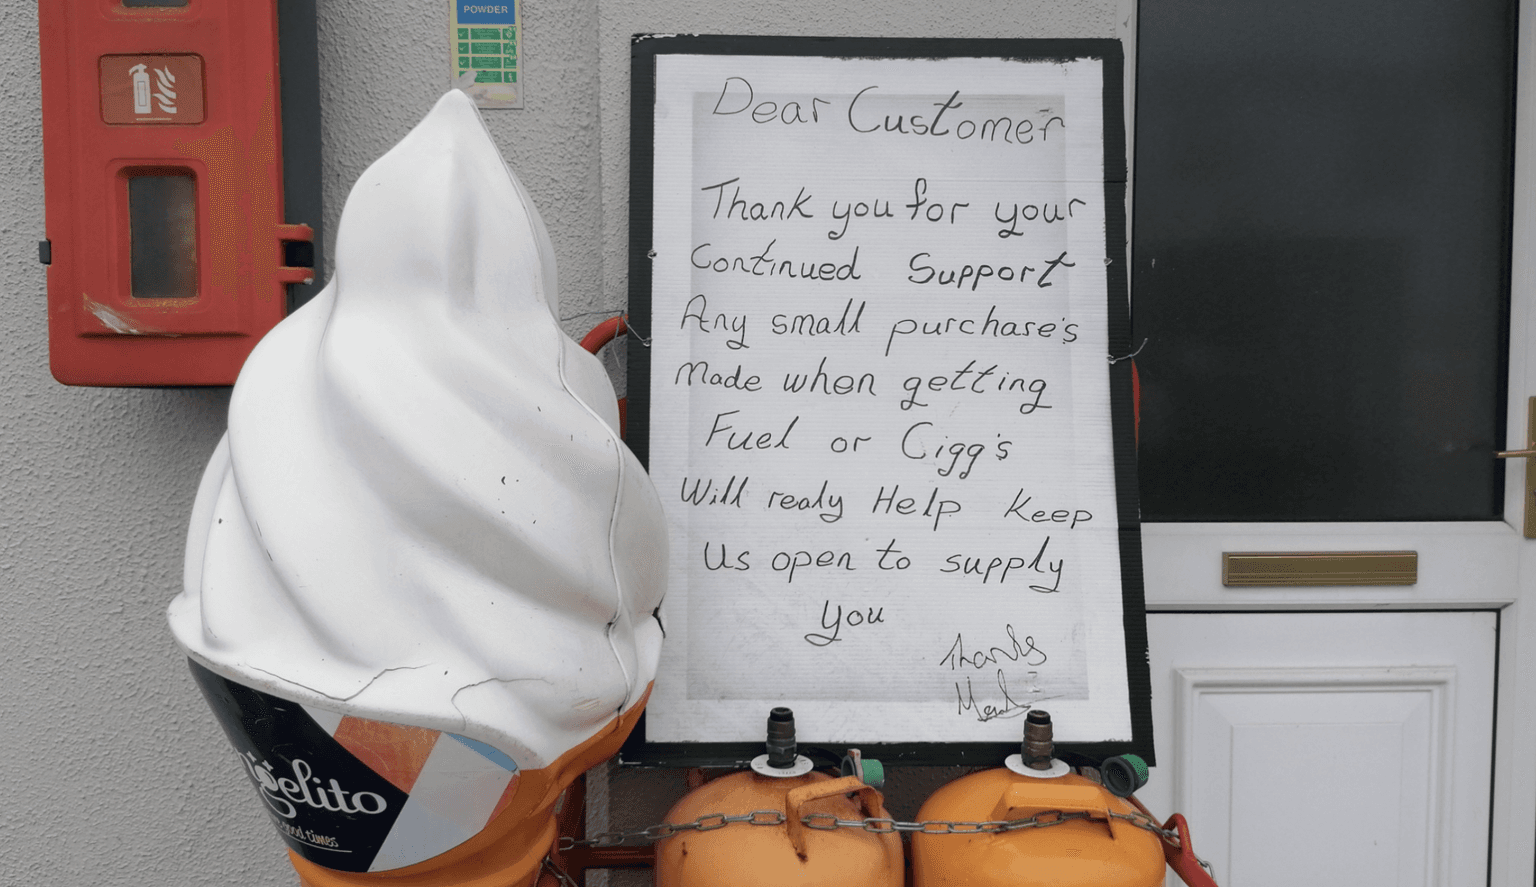 POWDER
Dear Customer
Thank you for your
Continued Support
Any small purchase's
Made when getting
Fuel or Cigg's
Will realy Help Keep
Us open to supply
you
Thanks
gelito
good times